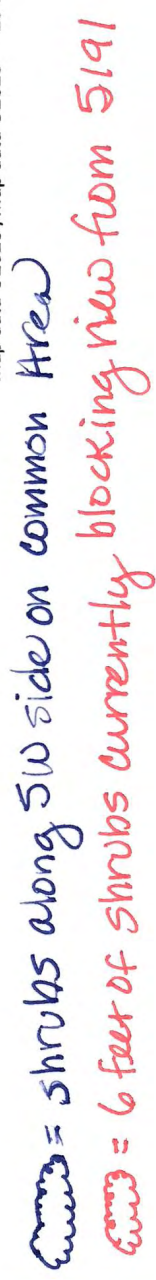 = shrubs along SW side on common Area
= 6 feet of shrubs currently blocking view from 5191